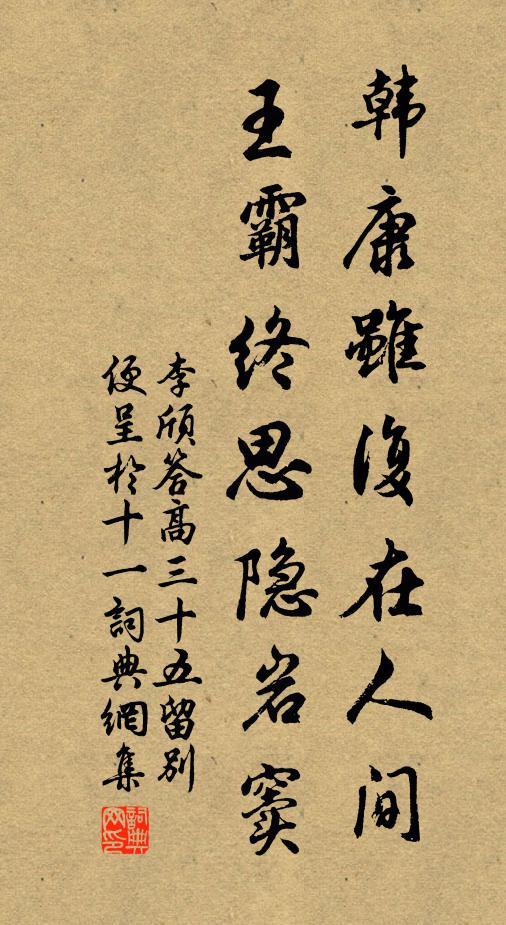 韩康雖復在人间
王霸终思隐岩竇
李頎答高三十五留别
便呈於十一詞典網集
詞典网印